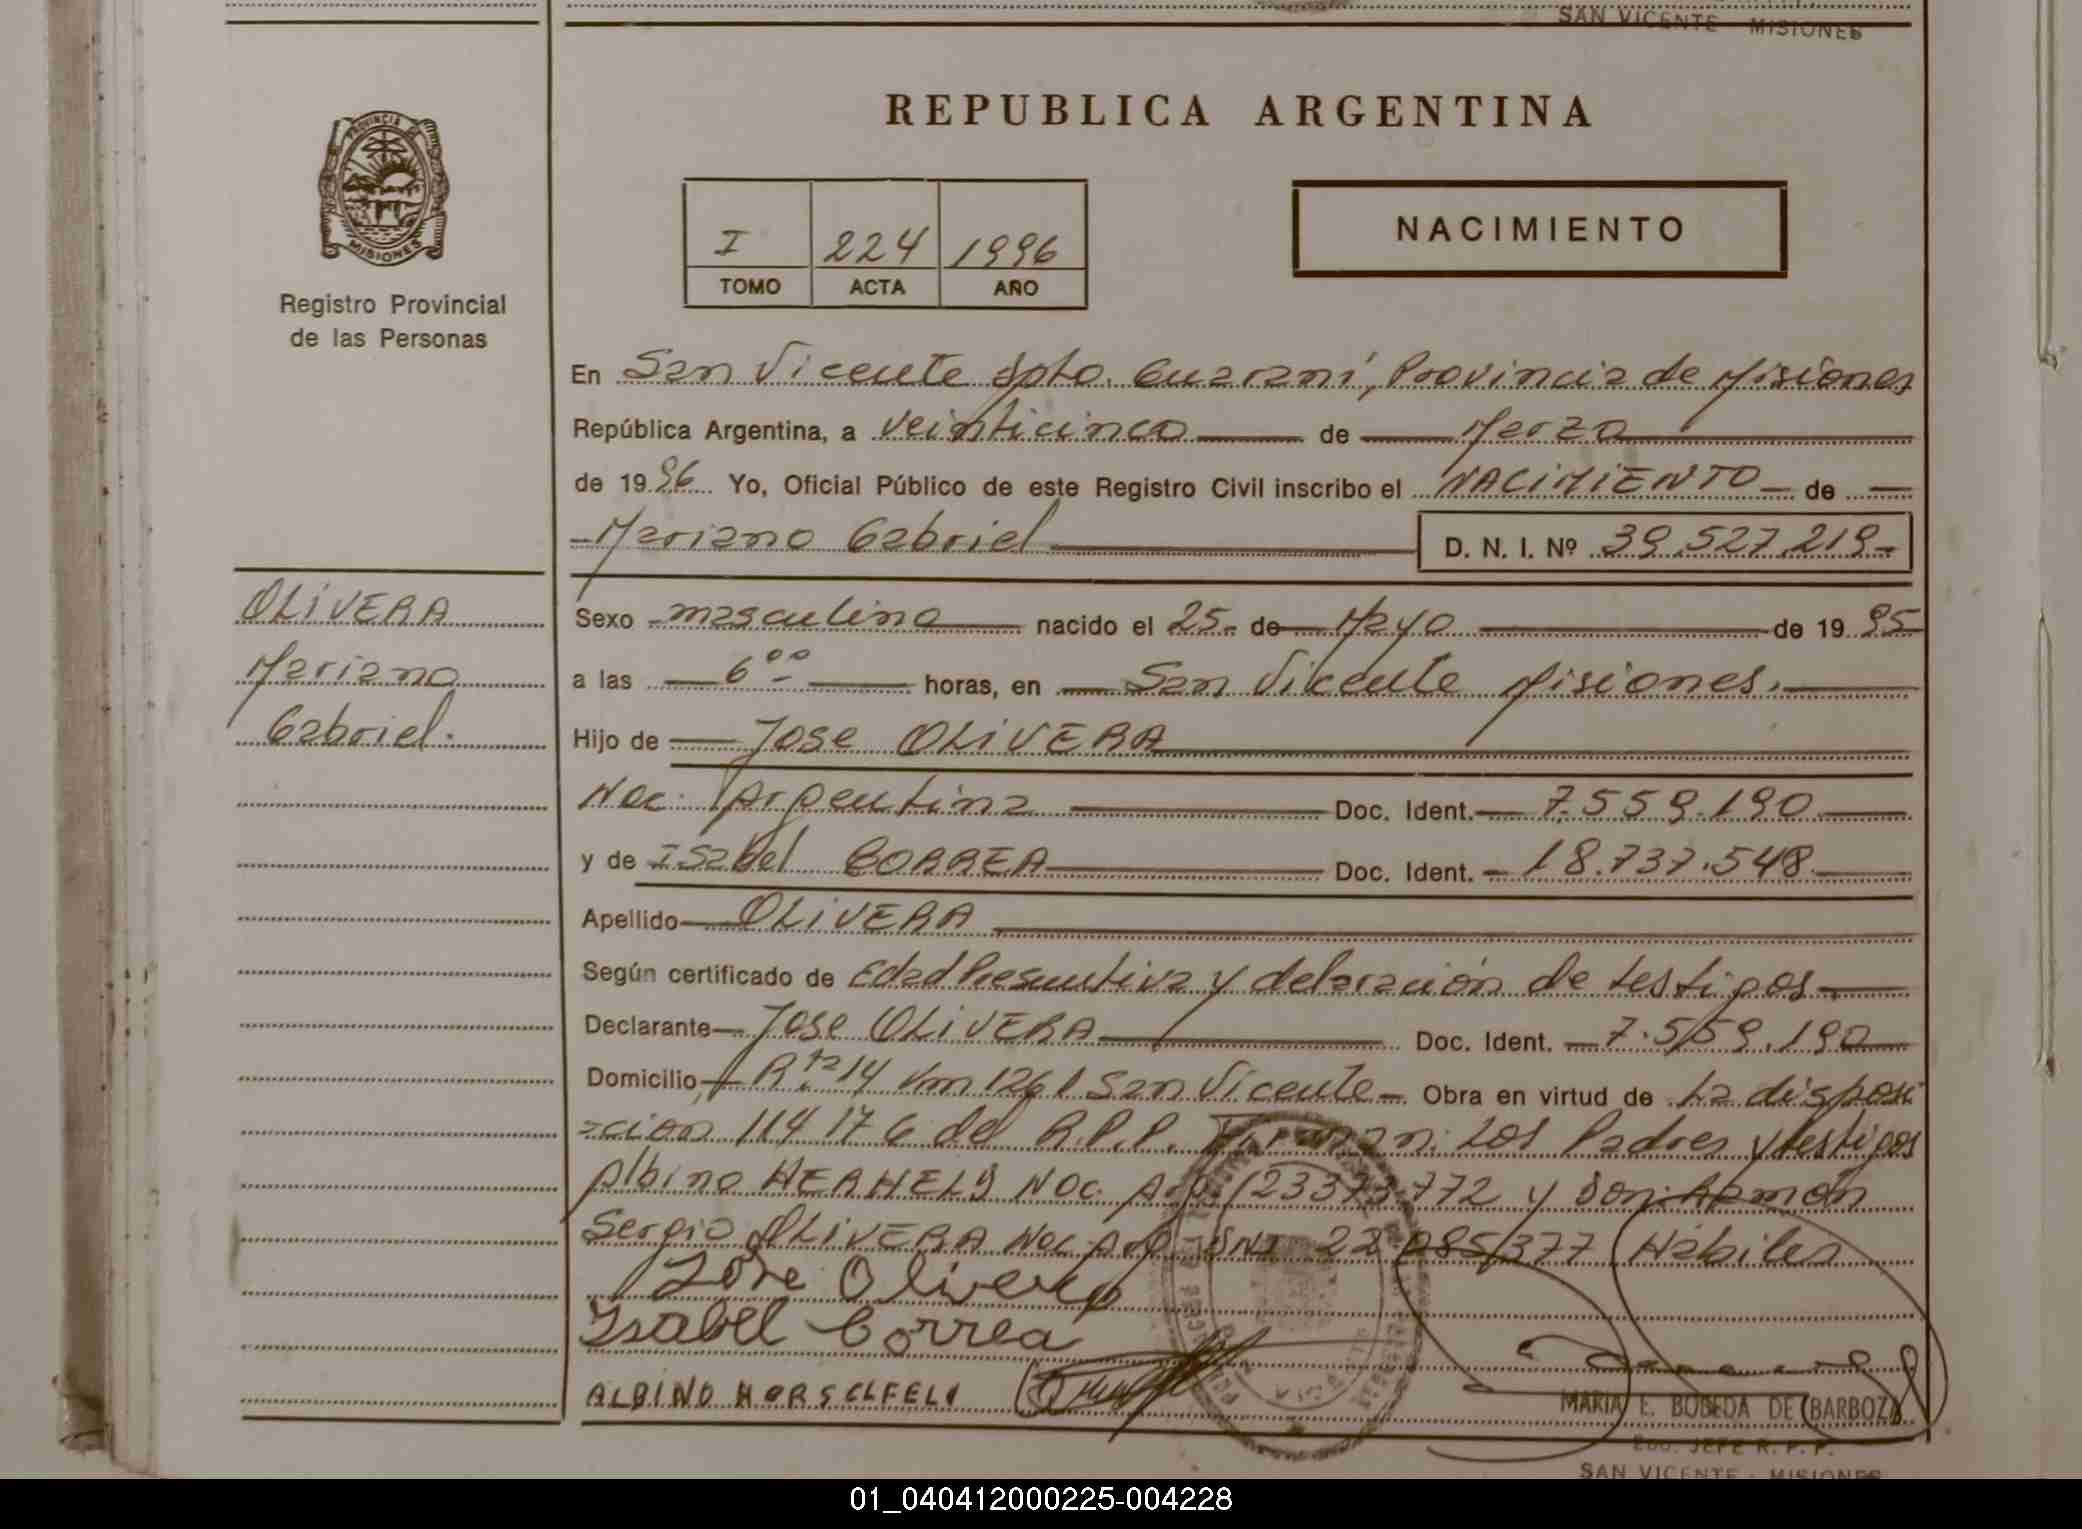 SAN VICENTE - MISIONES
REPUBLICA ARGENTINA
PROVINCIA DE
MISIONES
Registro Provincial
de las Personas
I 224 1996
TOMO ACTA AÑO
NACIMIENTO
En San Vicente Dpto. Guaraní, Provincia de Misiones
República Argentina, a veinticinco de Marzo
de 1996 Yo, Oficial Público de este Registro Civil inscribo el NACIMIENTO de
Mariano Gabriel D. N. I. Nº 39.527.219
OLIVERA
Mariano
Gabriel.
Sexo masculino nacido el 25 de Mayo de 1995
a las 6ºº horas, en San Vicente Misiones.
Hijo de Jose OLIVERA
Nac. Argentina Doc. Ident. 7.559.190
y de Isabel CORREA Doc. Ident. 18.737.548
Apellido OLIVERA
Según certificado de Edad Presuntiva y delaración de testigos
Declarante Jose OLIVERA Doc. Ident. 7.559.190
Domicilio Rta 14 Km 1261 San Vicente Obra en virtud de La disposi
cion 114 176 del R.P.P. Firman: Los Padres y testigos
Albino Nac. Arg. y Don Ramón
Sergio OLIVERA Nac. Arg. DNI 22.085.377 Hábiles
Jose Olivera
Isabel Correa
ALBINO
MARIA E. BOBEDA DE BARBOZA
JEFE R. P. P.
SAN VICENTE - MISIONES
01_040412000225-004228